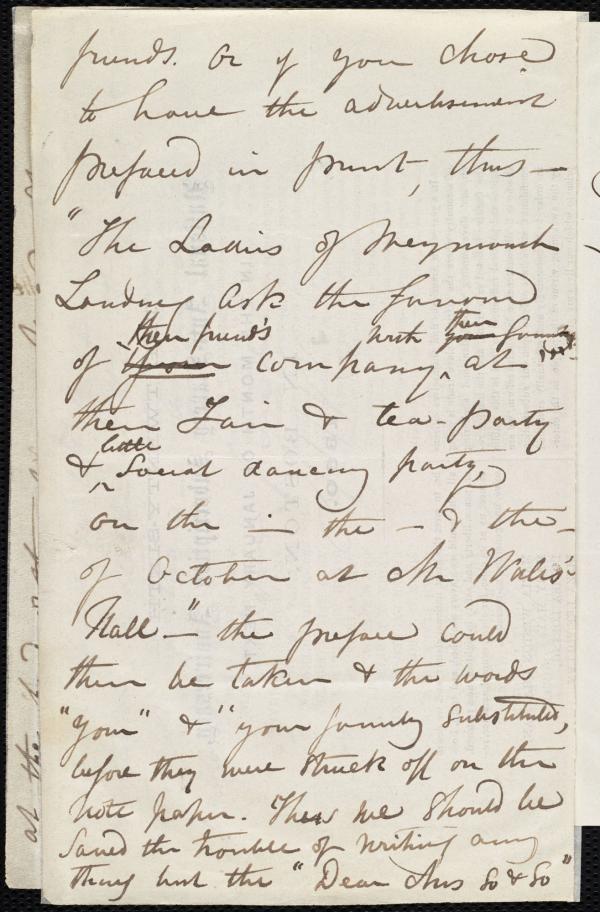 friends. Or if you chose
to have the advertisement
prefaced in print, thus —
"The Ladies of Weymouth
Landing ask the favour
their friend's with their
of your company, at your family
their Fair & tea-party
little
& social dancing party,
on the — the — & the —
of October at Mr Wales'
Hall —" the preface could
then be taken & the words
"your" & "your family substituted,
before they were struck off on the
note paper. Thus we should be
saved the trouble of writing any
thing but the "Dear Mrs So & So"
at the